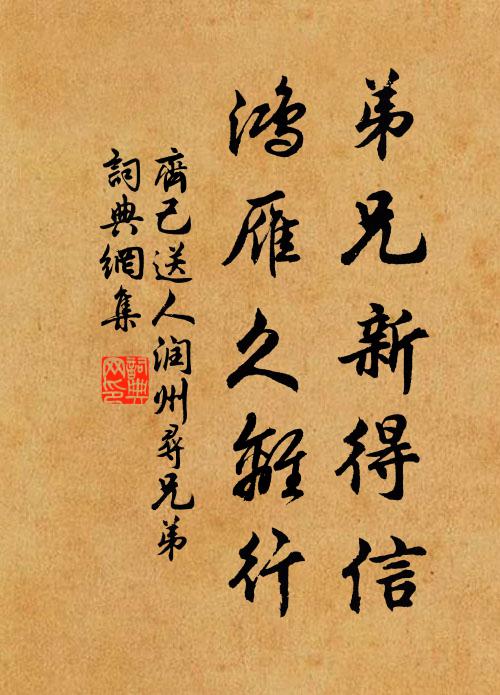 弟兄新得信
鴻雁久離行
齊己送人润州尋兄弟
詞典網集
詞典
网印